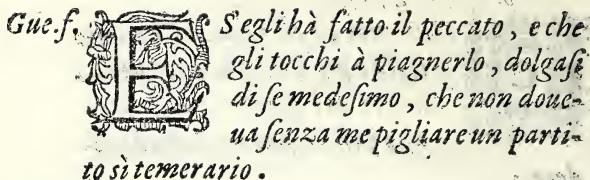 Gue.f. E S'egli hà fatto il peccato, e che
gli tocchi à piagnerlo, dolgasi
di se medesimo, che non doue-
ua senza me pigliare un parti-
to sì temerario.